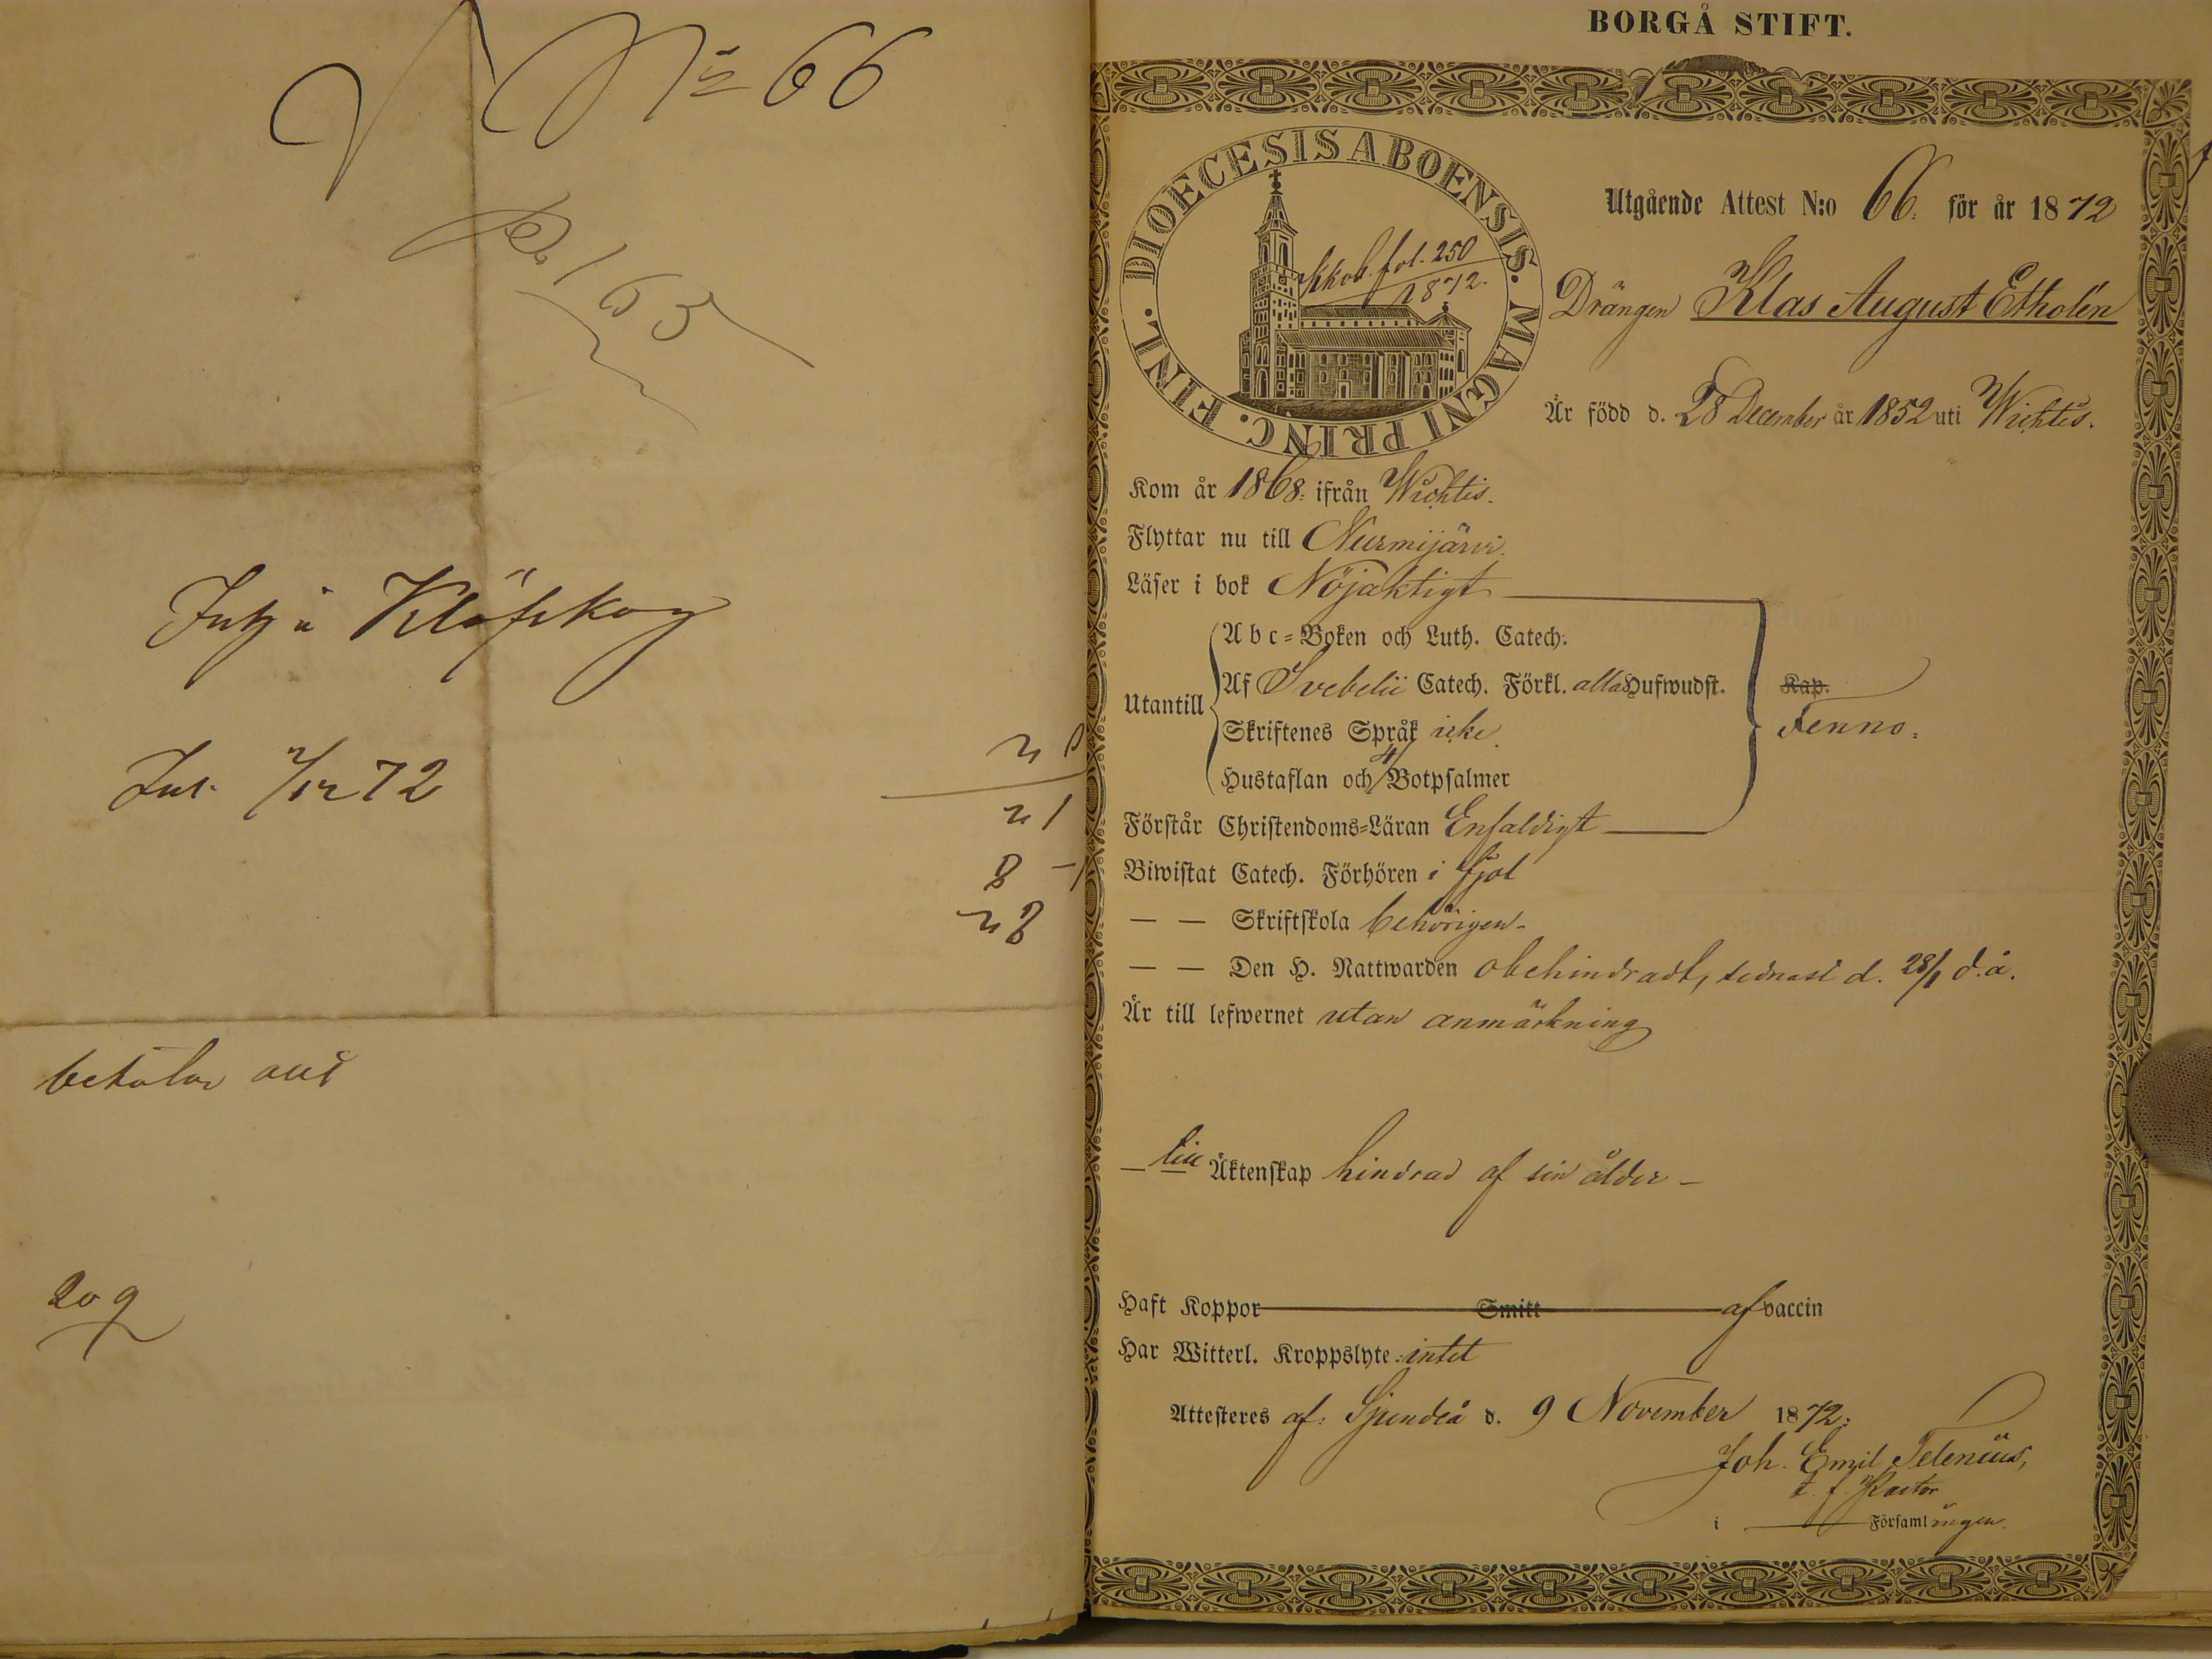 No 66
165
Kläfskog
72
21
8 -
28
betalar
209
BORGÅ STIFT.
DIOECESIS ABOENSIS. MAGNI PRINC. FINL.
fol. 250
1872.
Utgående Attest N:o 66. för år 1872
Drängen Klas August Etholén
Är född d. 28 December år 1852 uti Wichtis.
Kom år 1868. ifrån Wichtis.
Flyttar nu till Nurmijärvi.
Läser i bok Nöjaktigt
Abc-Boken och Luth. Catech.
Utantill
Af Svebelii Catech. Förkl. alla Hufwudst.
Kap.
Skriftenes Språk icke.
Fenno.
Hustaflan och 4 Botpsalmer
Förstår Christendoms-Läran Enfaldigt
Biwistat Catech. Förhören i fjol
— — Skriftskola behörigen
— — Den H. Nattwarden obehindradt, sednast d. 28/1 d.å.
Är till lefwernet utan anmärkning
— till Äktenskap hindrad af sin ålder —
Haft Koppor Smitt af vaccin
Har Witterl. Kroppslyte intet
Attesteres af: Sjundeå d. 9 November 1872.
Joh. Emil Telenius,
t. f. Pastor
i Församlingen.